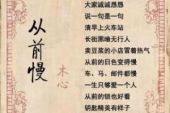 从前慢
木心
大家诚诚恳恳
说一句是一句
清早上火车站
长街黑暗无行人
卖豆浆的小店冒着热气
从前的日色变得慢
车、马、邮件都慢
一生只够爱一个人
从前的锁也好看
钥匙精美有样子